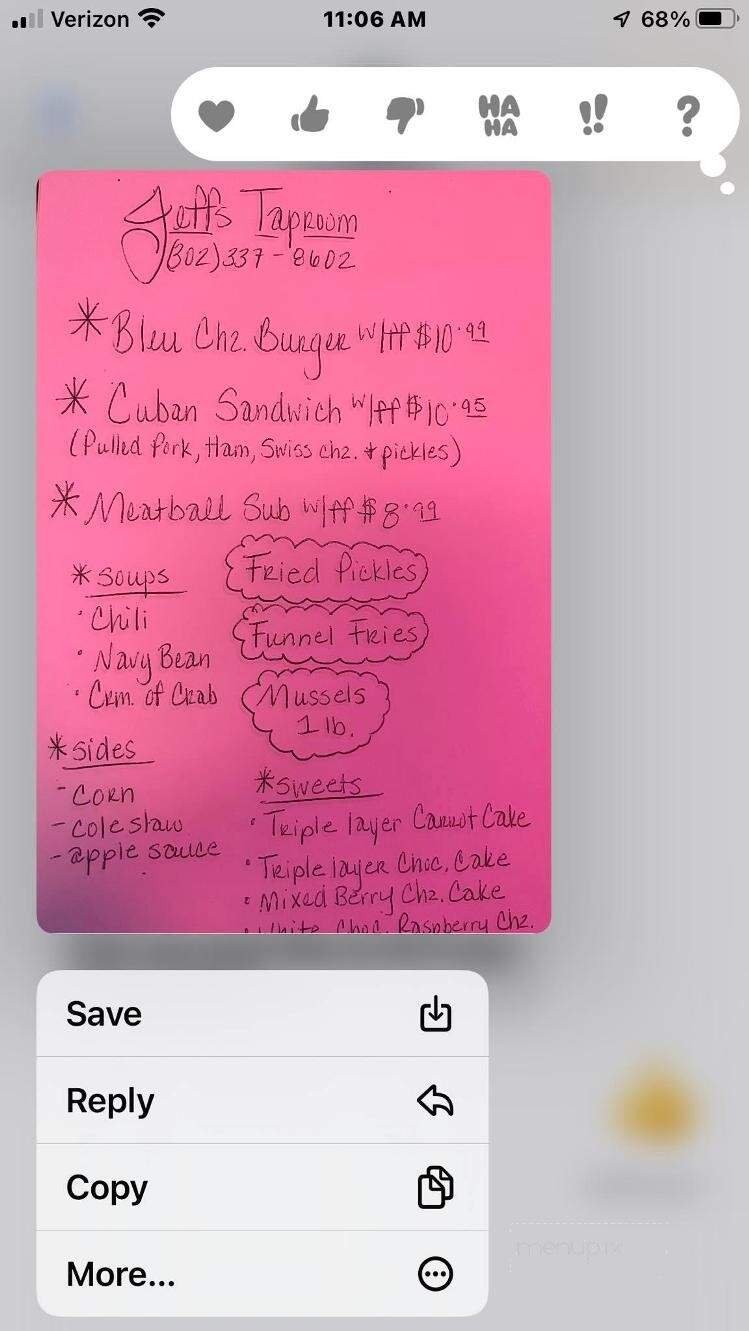 Verizon 11:06 AM 68%
HA
HA
!! ?
Jeffs Taproom
(302)337-8602
* Bleu Chz. Burger w/ff $10.99
* Cuban Sandwich w/ff $10.95
(Pulled Pork, Ham, Swiss chz. + pickles)
* Meatball Sub w/ff $8.99
* Soups
• Chili
• Navy Bean
• Crm. of Crab
Fried Pickles
Funnel Fries
Mussels
1 lb.
* Sides
- Corn
- cole slaw
- apple sauce
* Sweets
• Triple layer Carrot Cake
• Triple layer Choc. Cake
• Mixed Berry Chz. Cake
• White Choc. Raspberry Chz.
Save
Reply
Copy
More...
menupix